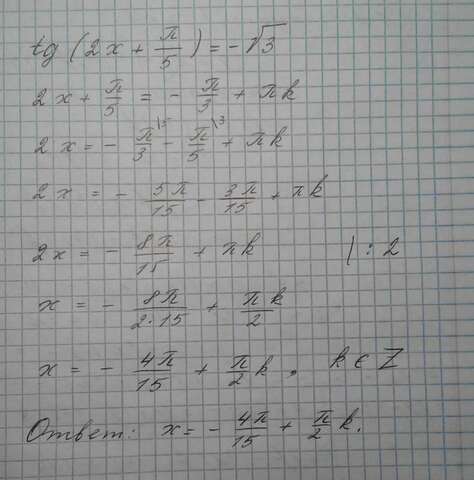 tg(2x + π/5) = -√3
2x + π/5 = - π/3 + πk
2x = - π/3 \5 - π/5 \3 + πk
2x = - 5π/15 - 3π/15 + πk
2x = - 8π/15 + πk | : 2
x = - 8π/2·15 + πk/2
x = - 4π/15 + π/2 k, k ∈ Z
Ответ: x = - 4π/15 + π/2 k.